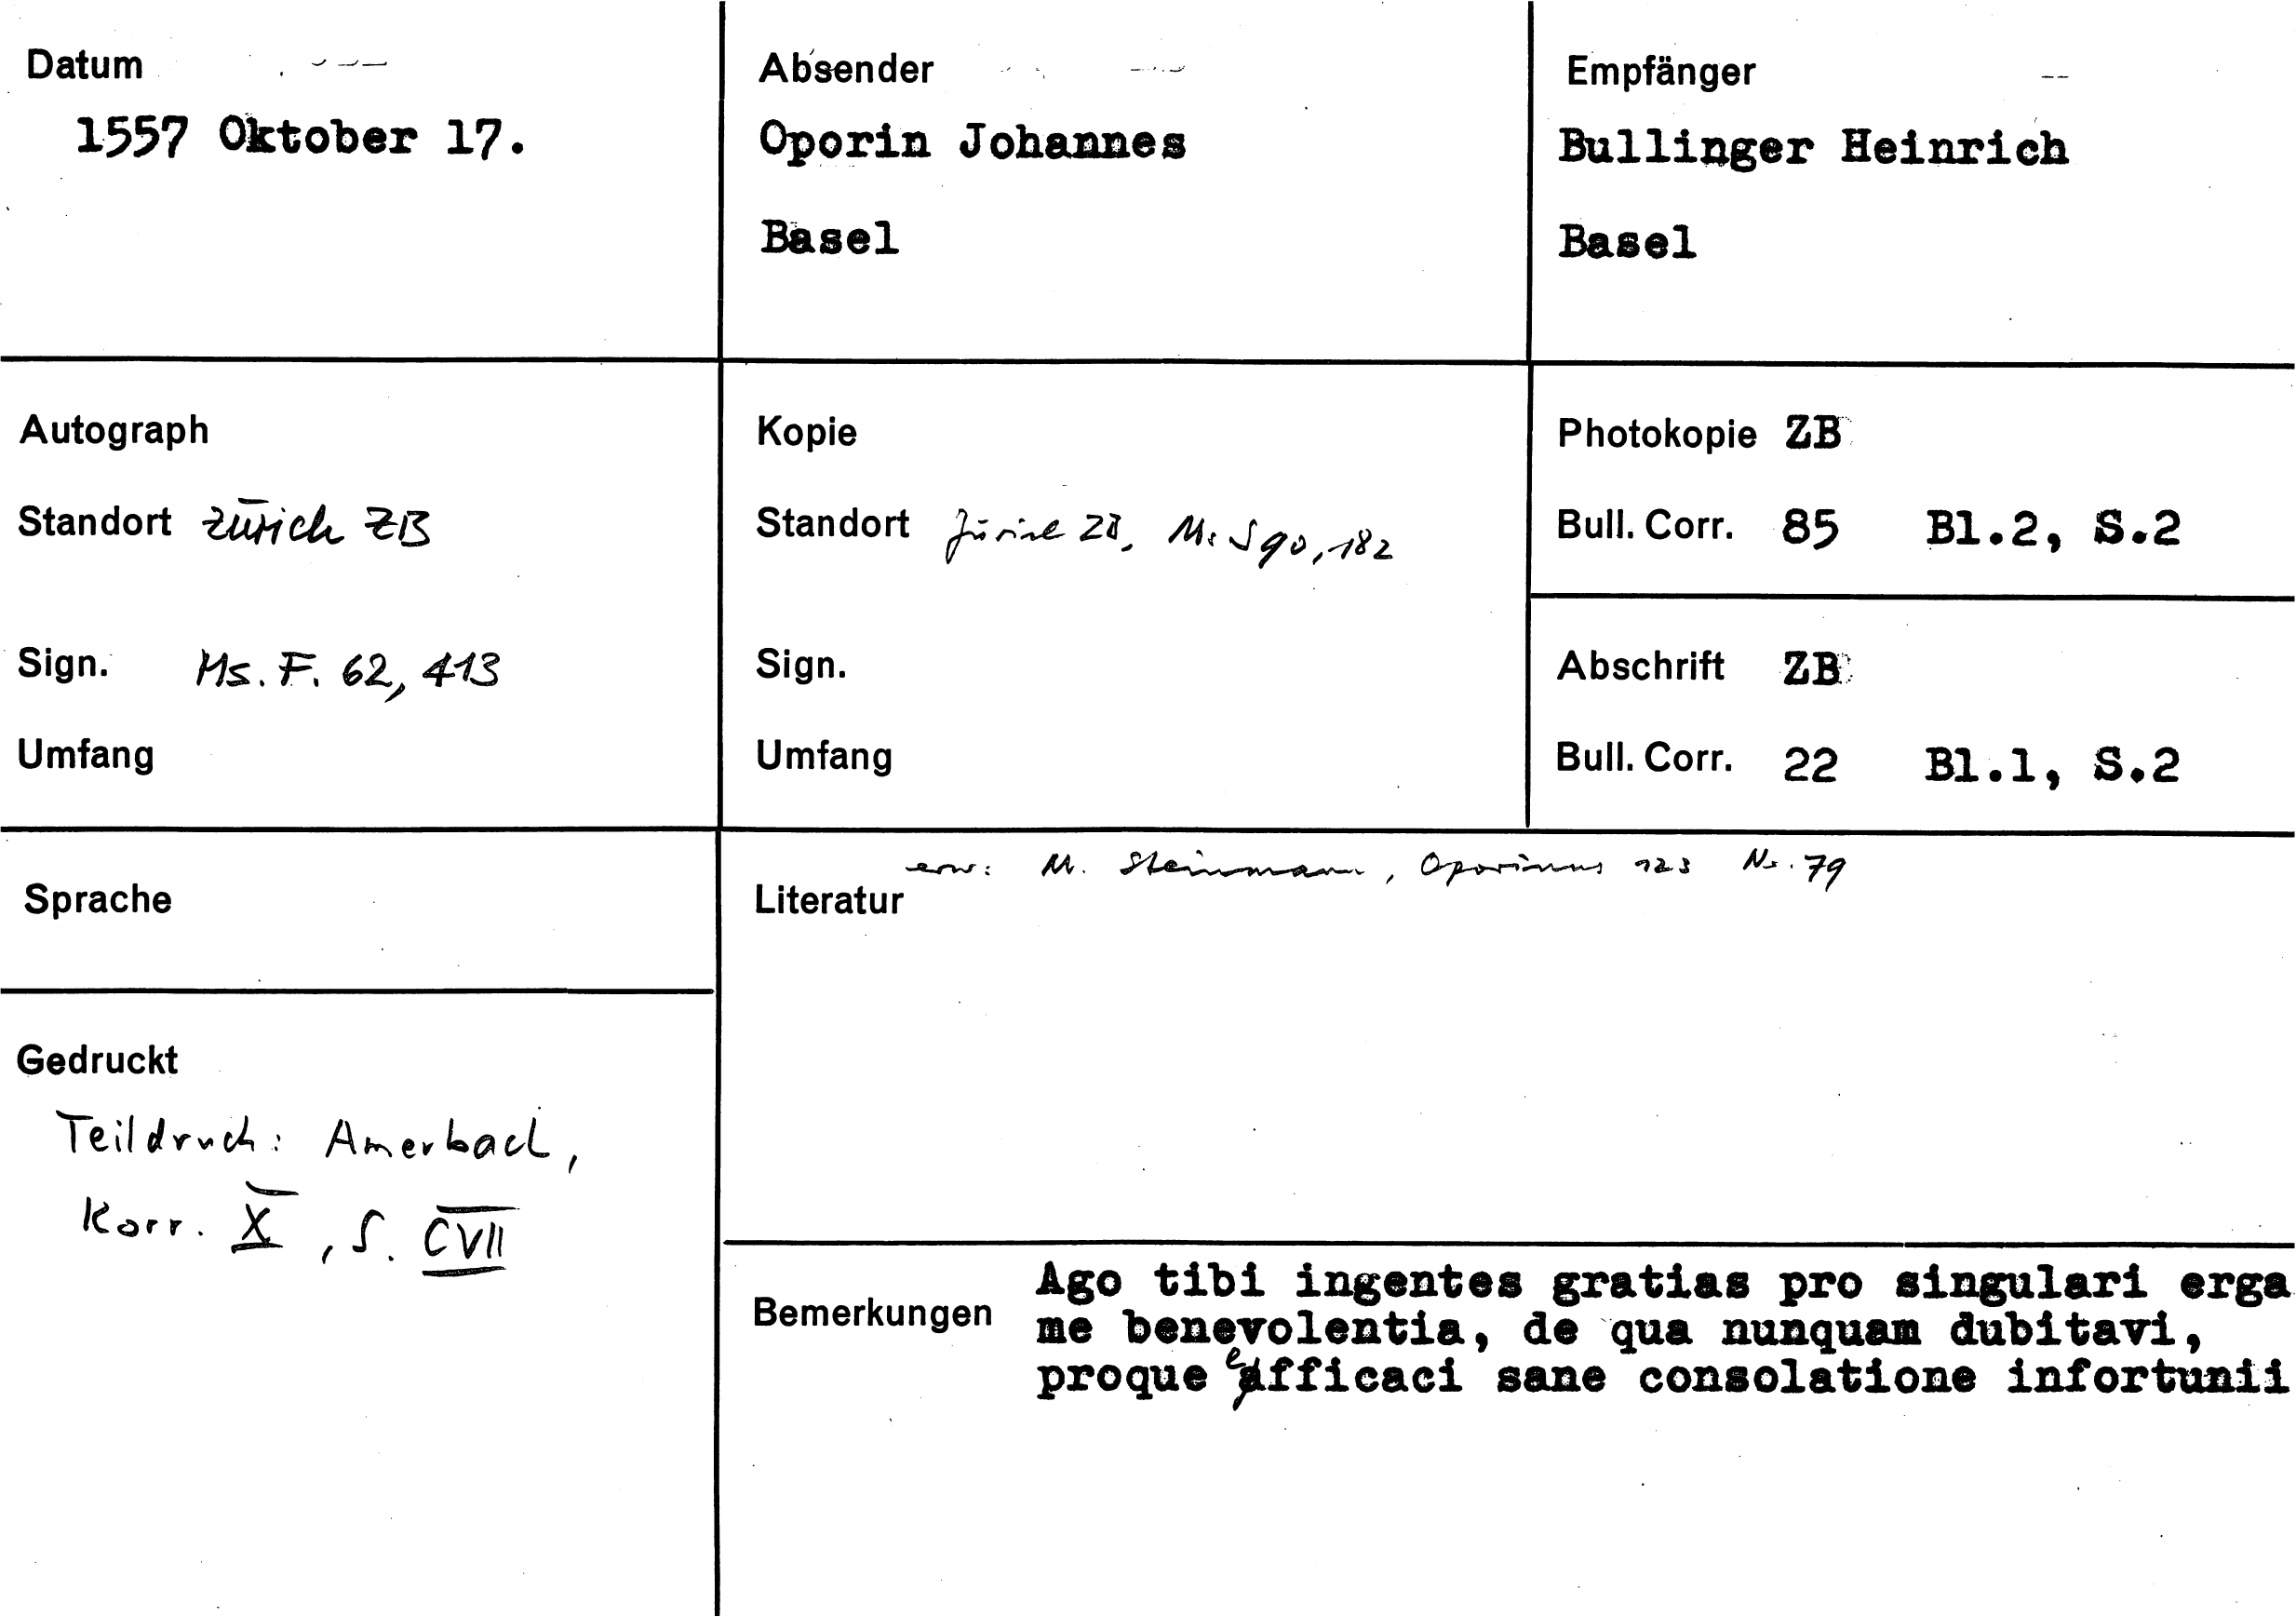 Datum
1557 Oktober 17.
Absender
Oporin Johannes
Basel
Empfänger
Bullinger Heinrich
Basel
Autograph
Standort Zürich ZB
Sign. Ms. F. 62, 413
Umfang
Kopie
Standort Zürich ZB, Ms S 90, 182
Sign.
Umfang
Photokopie ZB
Bull. Corr. 85 Bl.2, S.2
Abschrift ZB
Bull. Corr. 22 Bl.1, S.2
Sprache
Gedruckt
Teildruck: Amerbach,
Korr. X, S. CVII
Literatur erw: M. Steinmann, Oporinus 123 Nr. 79
Bemerkungen
Ago tibi ingentes gratias pro singulari erga
me benevolentia, de qua nunquam dubitavi,
proque efficaci sane consolatione infortunii